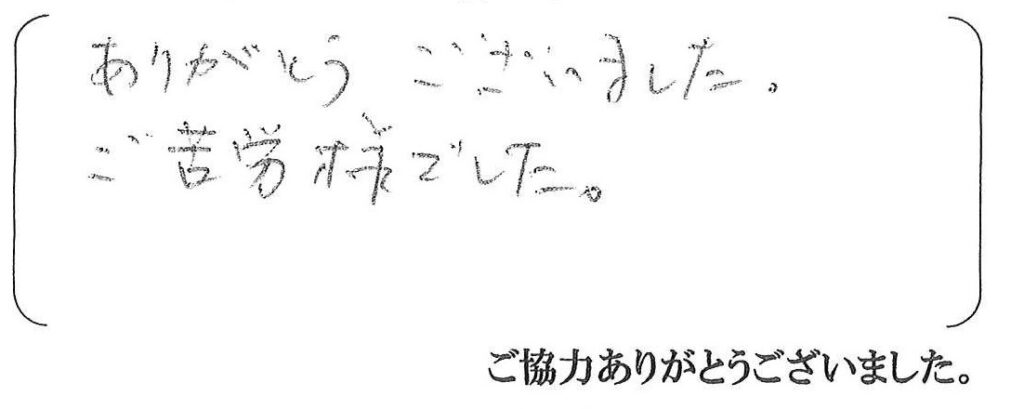 ありがとうございました。
ご苦労様でした。
ご協力ありがとうございました。